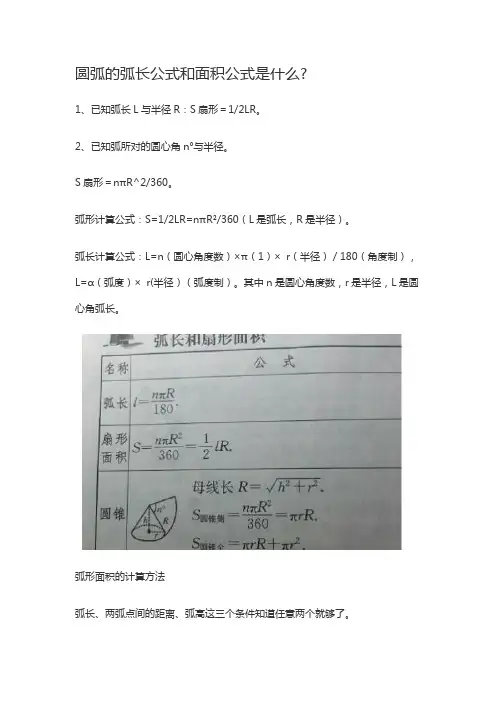 圆弧的弧长公式和面积公式是什么?
1、已知弧长L与半径R:S扇形=1/2LR。
2、已知弧所对的圆心角n°与半径。
S扇形=nπR^2/360。
弧形计算公式:S=1/2LR=nπR²/360(L是弧长,R是半径)。
弧长计算公式:L=n(圆心角度数)×π(1)× r(半径)/180(角度制),
L=α(弧度)× r(半径)(弧度制)。其中n是圆心角度数,r是半径,L是圆
心角弧长。
弧长和扇形面积
名称 公 式
弧长 l=nπR/180.
扇形面积 S=nπR²/360=1/2 lR.
圆锥 n° h R r
母线长R=√h²+r².
S圆锥侧=nπR²/360=πrR.
S圆锥全=πrR+πr².
弧形面积的计算方法
弧长、两弧点间的距离、弧高这三个条件知道任意两个就够了。